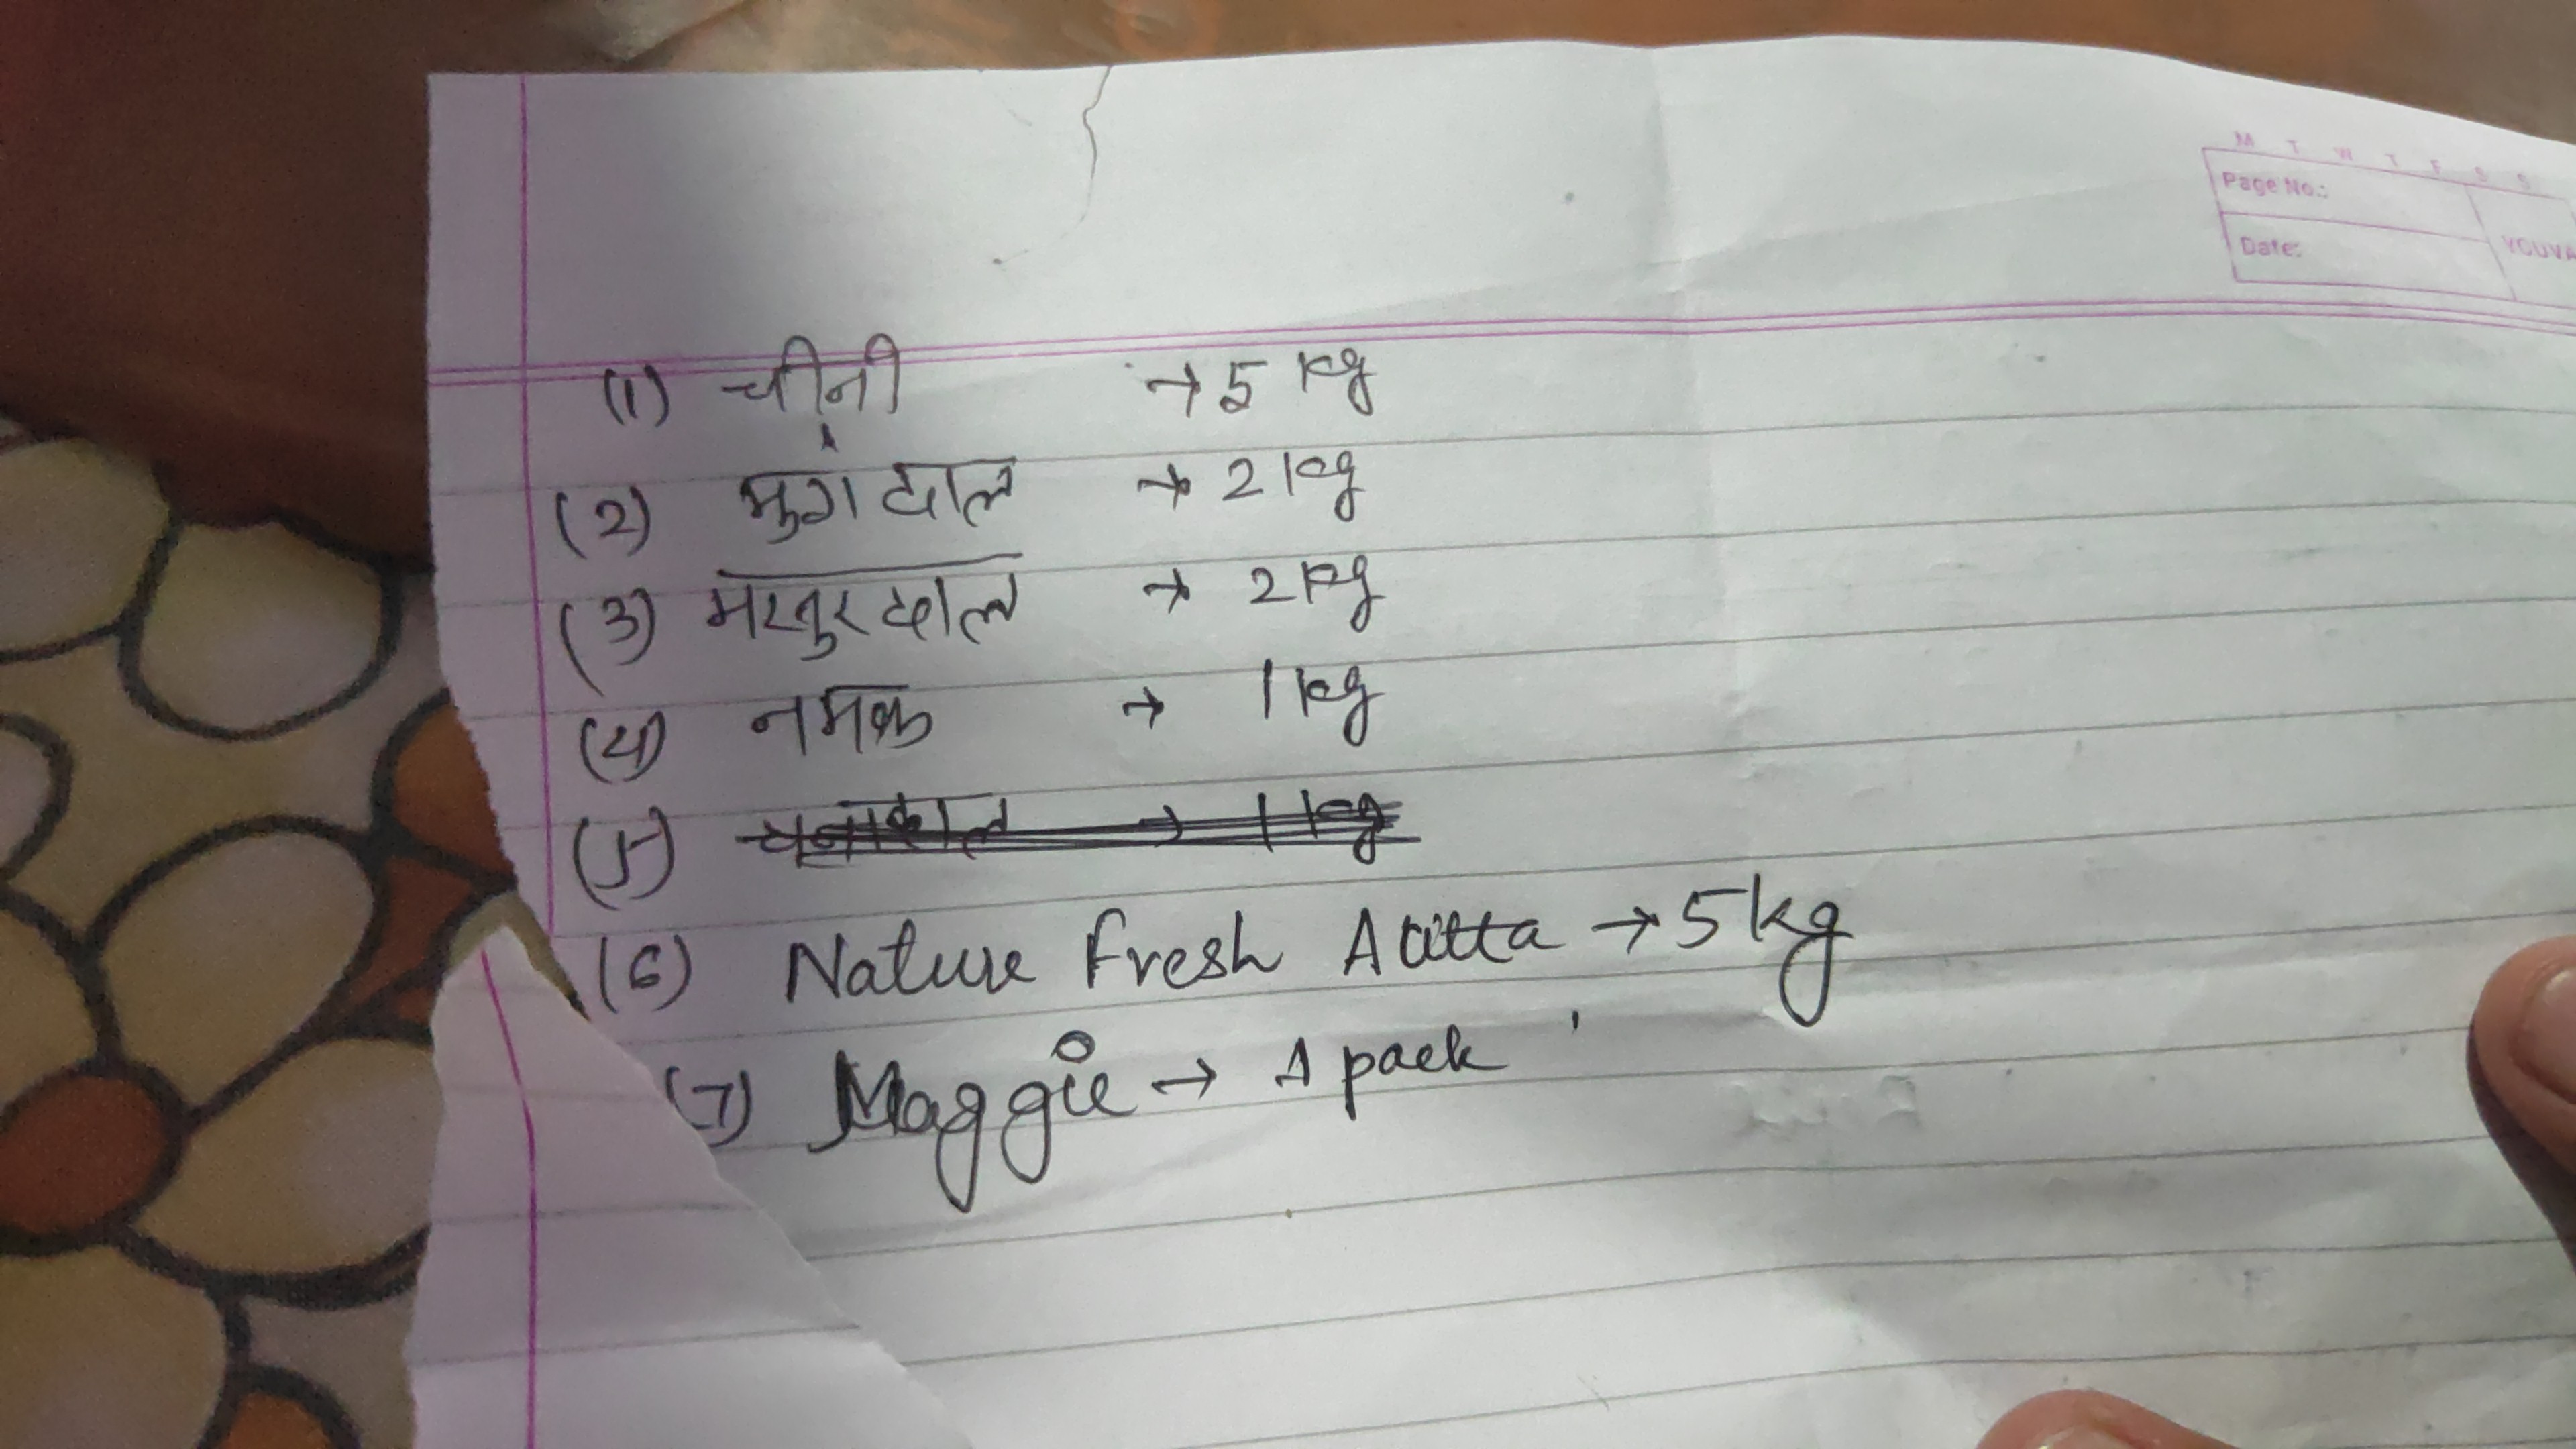 M T W T F S S
Page No.:
Date:
YOUVA
(1) चीनी → 5 kg
(2) मुंग दाल → 2 kg
(3) मसुर दाल → 2 kg
(4) नमक → 1 kg
(5) चना दाल → 1 kg
(6) Nature Fresh Aatta → 5 kg
(7) Maggie → 1 pack